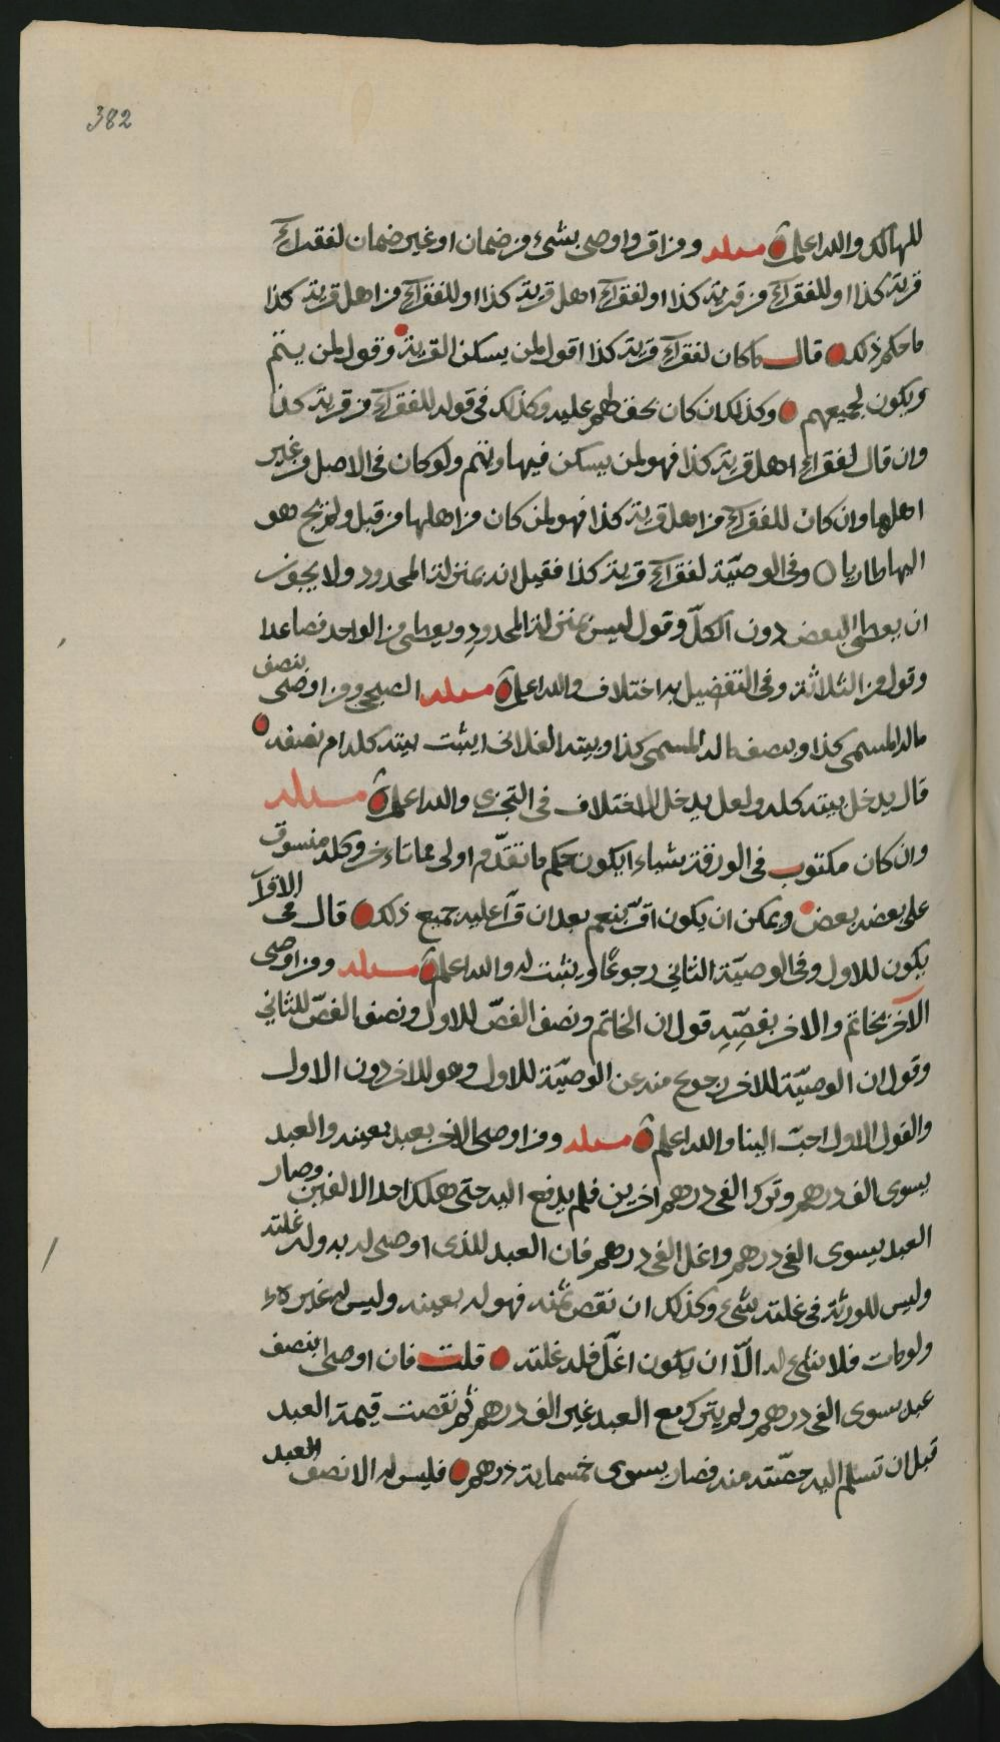 382
للهالك والله اعلم مسئلة ومن اقر واوصى بشيء من ضمان او غير ضمان لفقراء
قرية كذا او للفقراء من قرية كذا او لفقراء اهل قرية كذا او للفقراء من اهل قرية كذا
ما حكم ذلك قال ما كان لفقراء قرية كذا اقول لمن يسكن القرية وقول لمن يتم
ويكون لجميعهم وكذلك ان كان بحق لهم عليه وكذلك في قوله للفقراء من قرية كذا
وان قال لفقراء اهل قرية كذا فهو لمن يسكن فيها ويتم ولو كان في الاصل من غير
اهلها وان كان للفقراء من اهل قرية كذا فهو لمن كان من اهلها من قبل ولم يج هو
اليها طاريا وفي الوصيّة لفقراء قرية كذا فقيل انه بمنزلة المحدود ولا يجوز
ان يعطى البعض دون الكلّ وقول ليس بمنزلة المحدود ويعطى من الواحد فصاعدا
وقول من الثلاثة وفي التفضيل به اختلاف والله اعلم مسئلة الصبحي ومن اوصى بنصف
ماله المسمى كذا وبنصف ماله المسمى كذا وبيته الفلاني ايثبت بيته كله ام نصفه
قال يدخل بيته كله ولعل يدخل الاختلاف في التجزي والله اعلم مسئلة
وان كان مكتوب في الورقة بشياء ايكون حكم ما تقدّم اولى مما تاخر وكله منسوق
على بعضه بعض ويمكن ان يكون اقرّ بنعم بعد ان قرأ عليه جميع ذلك قال في الاقرار
يكون للاول وفي الوصيّة الثاني رجوعًا ويثبت له والله اعلم مسئلة ومن اوصى
لآخر بخاتم والاخر بفصّه قول ان الخاتم ونصف الفصّ للاول ونصف الفصّ للثاني
وقول ان الوصيّة للاخر رجوع منه عن الوصيّة للاول وهو للاخر دون الاول
والقول الاول احبّ الينا والله اعلم مسئلة ومن اوصى لاخر بعبد بعينه والعبد
يسوى الف درهم وترك الفي درهم اخرين فلم يدفع اليه حتى هلك احد الالفين وصار
العبد يسوى الفي درهم واغل الفي درهم فان العبد للذي اوصى له به وله غلته
وليس للورثة في غلته شيء وكذلك ان نقص ثمنه فهو له بعينه وليس له غيره
ولو مات فلا شيء له الّا ان يكون اغلّ فله غلته قلت فان اوصى بنصف
عبد يسوى الفي درهم ولم يترك مع العبد غير الف درهم ثم نقصت قيمة العبد
قبل ان تسلم اليه حصّته منه فصار يسوى خمسماية درهم فليس له الا نصف العبد